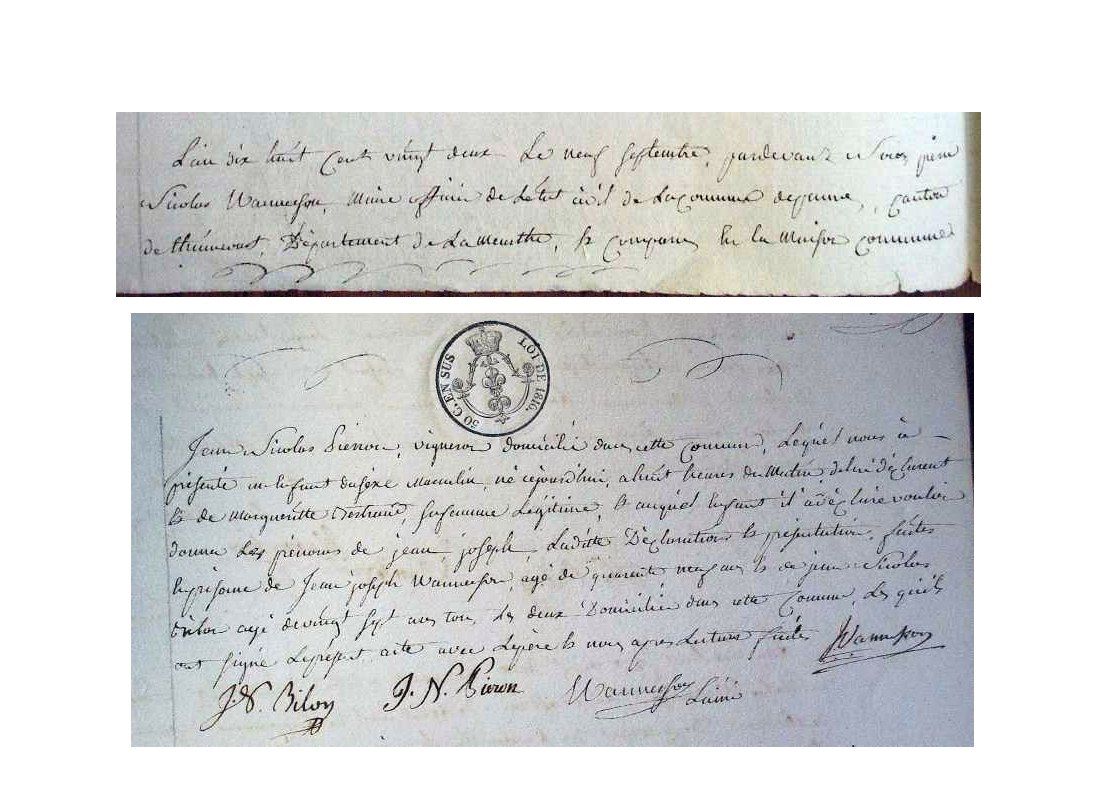 L'an dix huit Cent vingt deux Le neuf septembre, pardevant Nous pierre
Nicolas Wannesson, Maire officier de L'état civil de La Commune de jaune, Canton
de thiaucourt, Département de La Meurthe, Est Comparu En La Maison Commune
50 C. EN SUS LOI DE 1816.
Jean Nicolas Pierron, vigneron domicilié dans cette Commune, Lequel nous à
présenté un Enfant du sexe Masculin, né cejourd'hui, a huit heures du Matin, de lui déclarant
Et de Margueritte, sa femme Légitime, Et auquel Enfant il a déclaré vouloir
donner Les prénoms de jean joseph, Laditte Déclaration Et présentation, faites
En présence de Jean joseph Wannesson, agé de quarente neuf ans Et de jean Nicolas
Bilon agé de vingt sept ans tous Les deux Domicilié dans cette Commune, Les quels
ont signé Le présent acte avec Le père Et nous apres Lecture faites
Wannesson
J. N. Bilon J. N. Pieron Wannesson
L'ainé